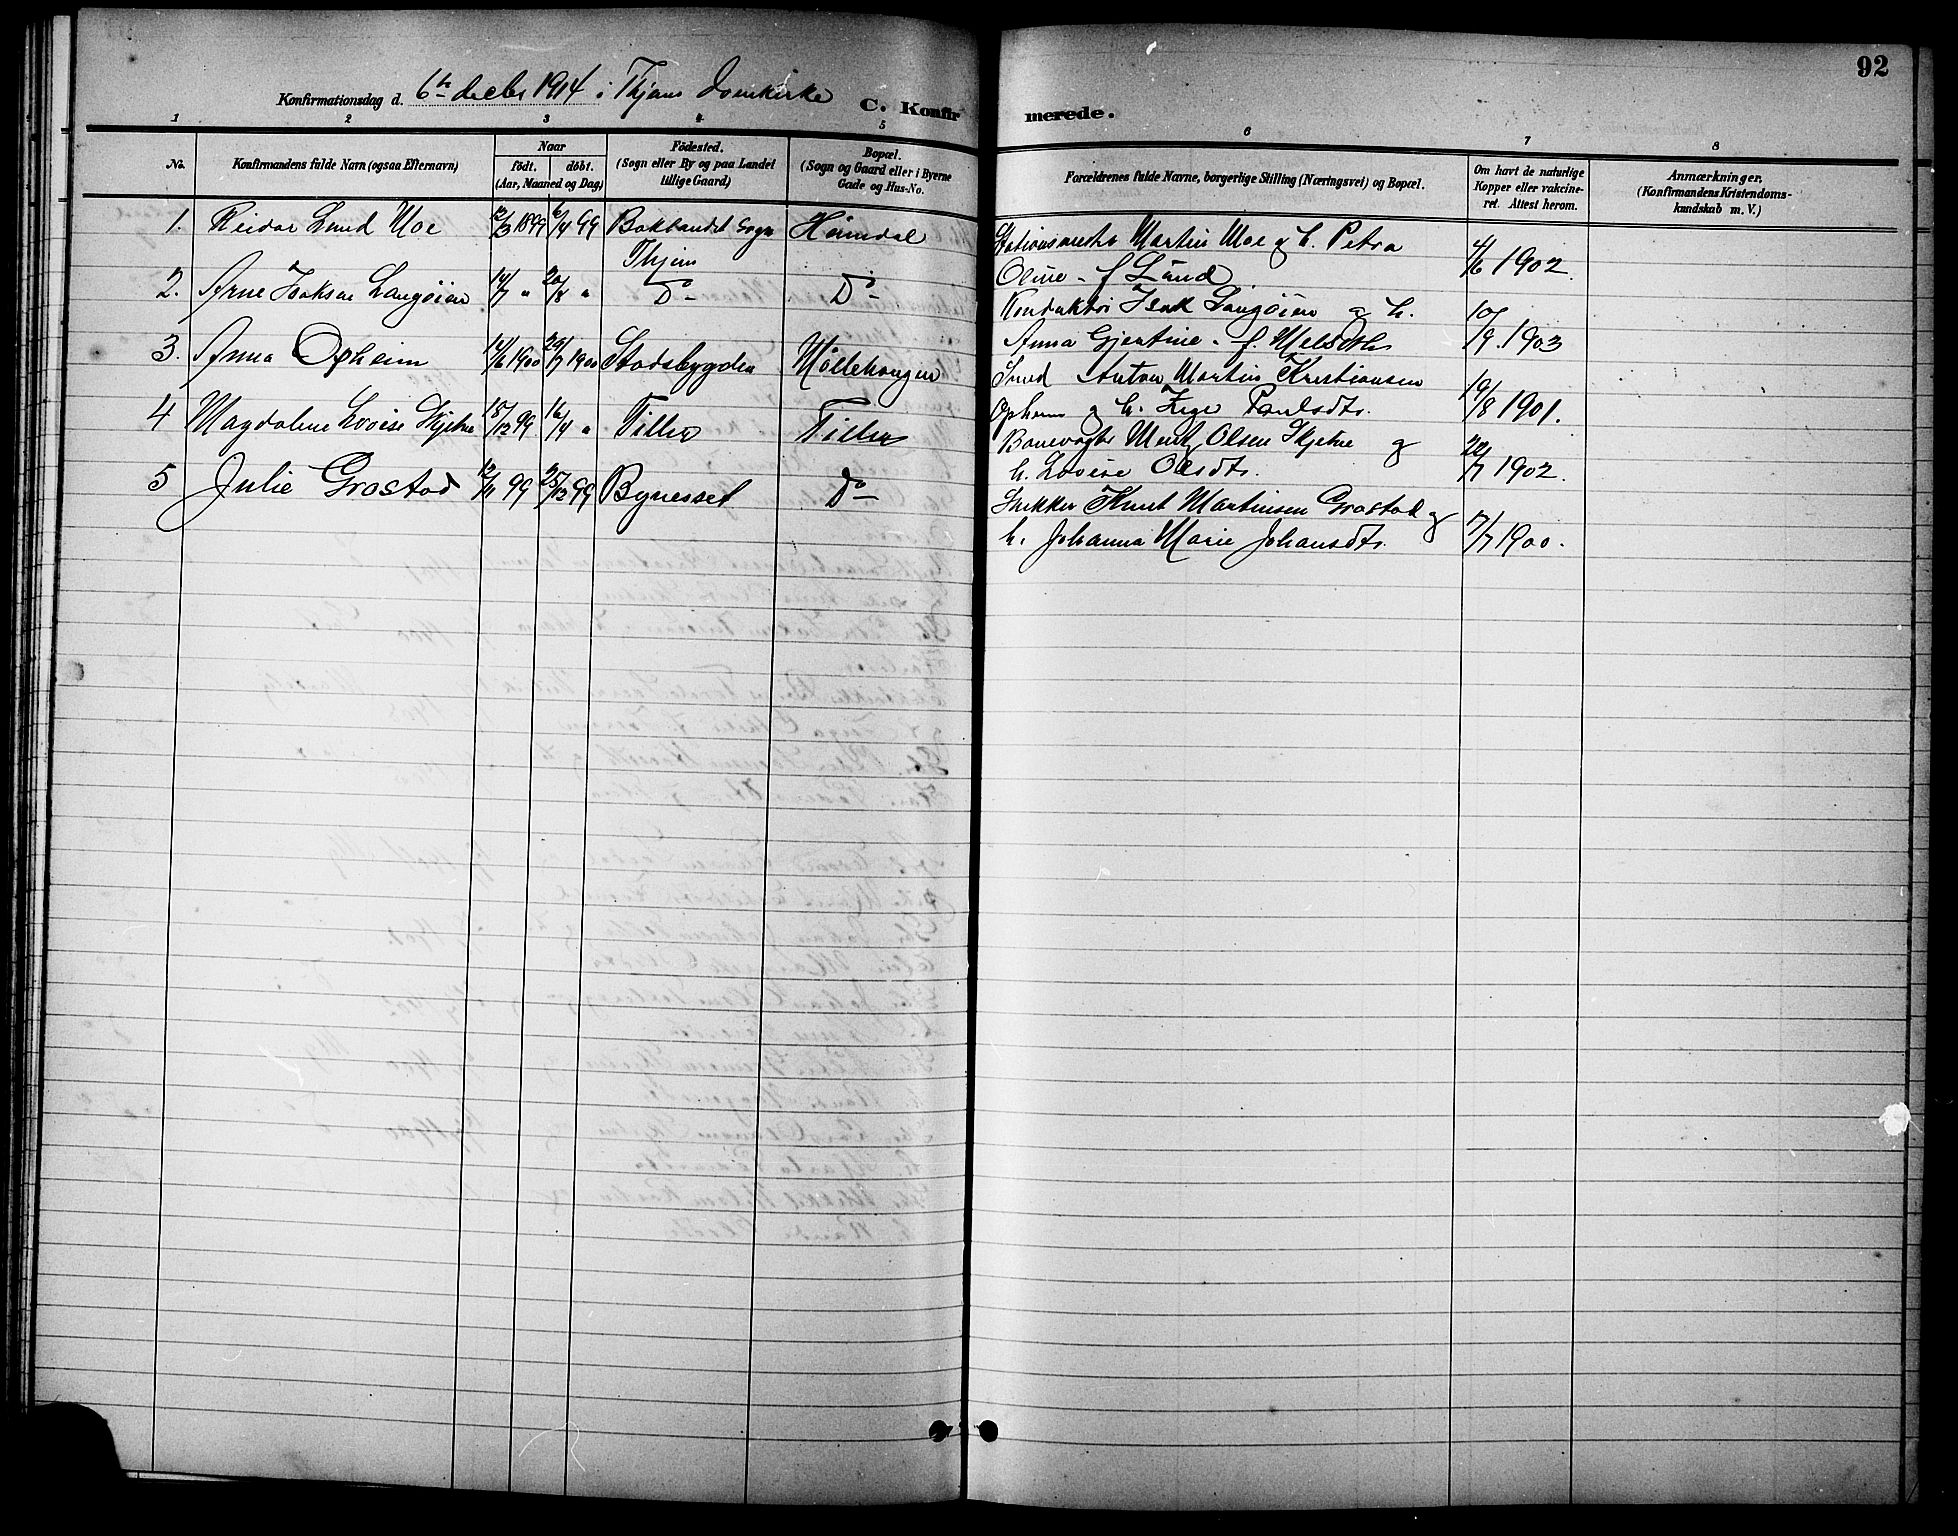 92
Konfirmationsdag d. 6te decbr 1914 i Thjems Domkirke
C. Konfirmerede.
1 2 3 4 5 6 7 8
No.
Konfirmandens fulde Navn (ogsaa Efternavn)
Naar
födt. döbt.
(Aar, Maaned og Dag)
Födested.
(Sogn eller By og paa Landet
tillige Gaard)
Bopæl.
(Sogn og Gaard eller i Byerne
Gade og Hus-No.
Forældrenes fulde Navne, borgerlige Stilling (Næringsvei) og Bopæl.
Om havt de naturlige
Kopper eller vakcine-
ret. Attest herom.
Anmærkninger,
(Konfirmandens Kristendoms-
kundskab m. V.)
1. Reidar Lund Moe 12/3 1899 6/4 99 Baklandet Sogn Heimdal
Thjem
Stationsmester Martin Moe og h. Petra
Oline - f. Lund 4/6 1902.
2. Arne Isaksen Langöien 14/7 " 20/8 " Do Do
Konduktör Isak Langöien og h.
Anna Gjertine - f. 10/9 1903
3. Anna Opheim 14/6 1900 29/7 1900 Stadsbygden Möllehaugen
Smed Anton Martin Kristiansen
Opheim og h. Paulsdtr. 19/8 1901.
4 Magdalene Lovise Skjetne 15/12 99 16/4 " Tiller Tiller
Banevogter Olsen Skjetne og
h. Lovise Olsdtr. 1902.
5 Julie Grostad 12/11 99 25/12 99 Bynesset Do
Snekker Knut Martinsen Grostad og
h. Johanna Marie Johansdtr. 7/7 1900.